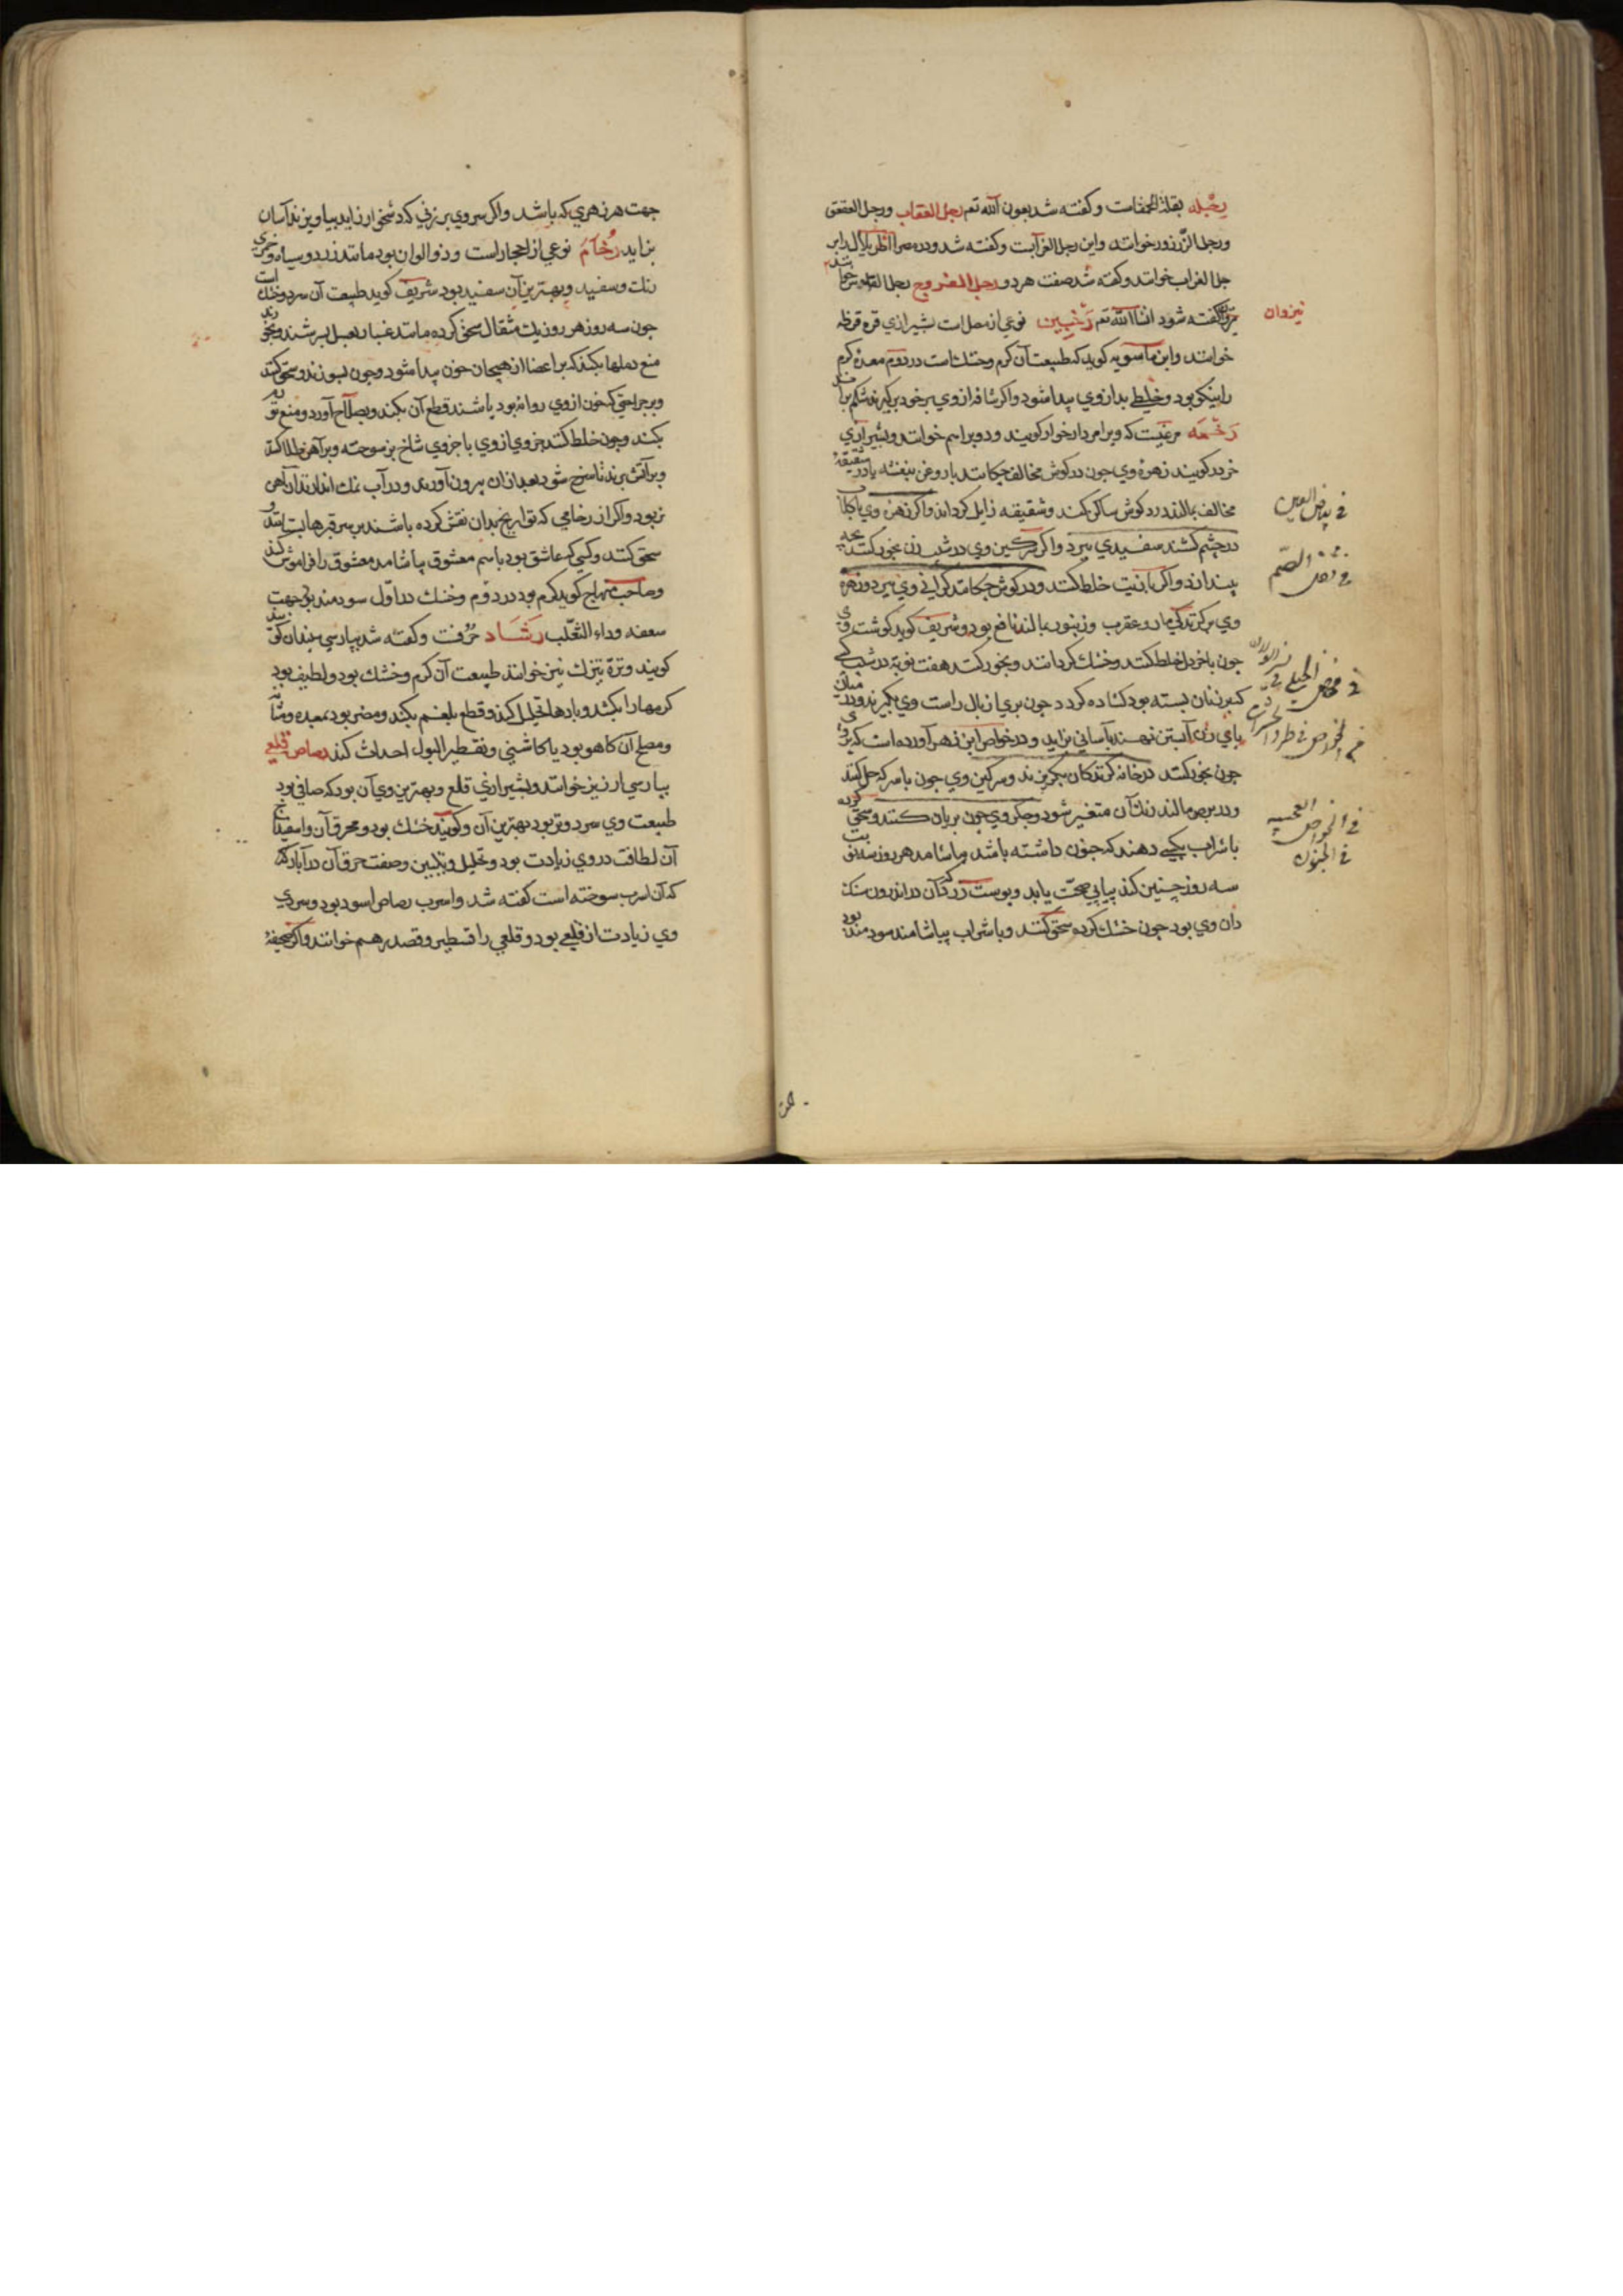 رجله بقلة الحمقاست و کفته شد بعون الله تع رجل العقاب و رجل العقعق
و رجل الزرزور خوانند و این رجل الغرابست و کفته شد و در مصر اطریلال را
رجل الغراب خوانند و کفته شد صفت هر دو رجل الفروج رجل
کفته شود انشاالله تع رخبین نوعی از مصل است بشیرازی قره قرط
خوانند و ابن ماسویه کوید که طبیعت آن کرم و خشک است در دوم معده کرم
را نیکو بود و خلطی بد از وی پیدا شود و اکر شافه از وی بر خود برکیرند شکم براند
رخمه مرغیست که ویرا مردارخوار کویند و دوبرا هم خوانند و بشیرازی
خرد کویند زهره وی جون در کوش مخالف چکانند با روغن بنفشه یا در شقیقه
مخالف بمالند درد کوش ساکن کند و شقیقه زایل کرداند و اکر زهره وی با کلاب
در چشم کشند سفیدی ببرد و اکر سرکین وی در شیب زن بخور کنند بچه
بیندازد و اکر با زیت خلط کنند و در کوش چکانند کرانی وی ببرد و زهره
وی بر کزندکی مار و عقرب و زنبور بمالند نافع بود و شریف کوید کوشت وی
جون با خردل خلط کنند و خشک کردانند و بخور کنند هفت نوبة در شیب کسی
کش از زنان بسته بود کشاده کردد جون بری از بال راست وی بکیرند و در میان
پای زن آبستن نهند بآسانی بزاید و در خواص ابن زهر آورده است که پر وی
جون بخور کنند در خانه کزندکان بکریزند و سرکین وی جون با سرکه حل کنند
و در برص مالند رنک آن متغیر شود و جکر وی جون بریان کنند و سحق کرده
با شراب بکسی دهند که جنون داشته باشد بیاشامد هر روز سه نوبت
سه روز چنین کند پیاپی صحت یابد و پوست زرد که آن در اندرون سنک
دان وی بود جون خشک کرده سحق کنند و با شراب بیاشامند سودمند بود
نیزوان
فی بیاض العین
فی الصمم
فی الخواص فی طرد الحشرات
فی الخواص العجیبه
فی الجنون
جهت هر زهری که باشد و اکر سر وی بر زنی که دشخوار زاید بیاویزند آسان
بزاید رخام نوعی از احجار است و ذو الوان بود مانند زرد و سیاه و خمری
رنک و سفید و بهترین آن سفید بود شریف کوید طبیعت آن سرد و خشک است
جون سه روز هر روز یک مثقال سحق کرده مانند غبار بعسل بسرشند و بخورند
منع دملها بکند که بر اعضا از هیجان خون پیدا شود و جون بسوزند و سحق کنند
و بر جراحتی که خون از وی روانه بود پاشند قطع آن بکند و بصلاح آورد و منع تورم
بکند و جون خلط کنند جزوی از وی با جزوی شاخ بز سوخته و بر آهن طلا کنند
و بر آتش برند تا سرخ شود بعد از آن بیرون آورند و در آب نمک اندازند آن آهن
نر بود و اکر از رخامی که تواریخ بدان نقش کرده باشند بر سر قبرها بستانند و
سحق کنند و کسی که عاشق بود باسم معشوق بیاشامد معشوق را فراموش کند
و صاحب منهاج کوید کرم بود در دوم و خشک در اول سودمند بود جهت
سعفه و داء الثعلب رشاد حرفست و کفته شد بپارسی سپندان
کویند و تره تیزک نیز خوانند طبیعت آن کرم و خشک بود و لطیف بود
کرمها را بکشد و بادها تحلیل کند و قطع بلغم بکند و مضر بود بمعده و مثانه
و مصلح آن کاهو بود یا کاسنی و تقطیر البول احداث کند رصاص قلعی
بپارسی ارزیز خوانند و بشیرازی قلع و بهترین وی آن بود که صافی بود
طبیعت وی سرد و تر بود بهترین آن و کویند خشک بود و محرق آن و اسفیداج
آن لطافت در وی زیادت بود و تحلیل و تلیین و صفت حرق آن در آبار
که آن اسرب سوخته است کفته شد و اسرب رصاص اسود بود و سردی
وی زیادت از قلعی بود و قلعی را قسطیر و قصدیر هم خوانند و اکر صحیفه